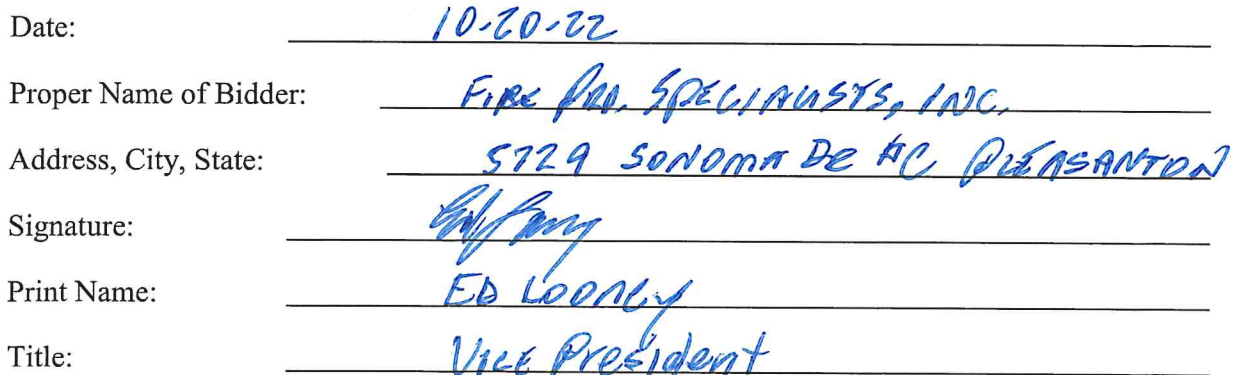 Date: 10-20-22
Proper Name of Bidder: FIRE PRO. SPECIALISTS, INC.
Address, City, State: 5729 SONOMA DR #C PLEASANTON
Signature:
Print Name: ED LOONEY
Title: Vice President